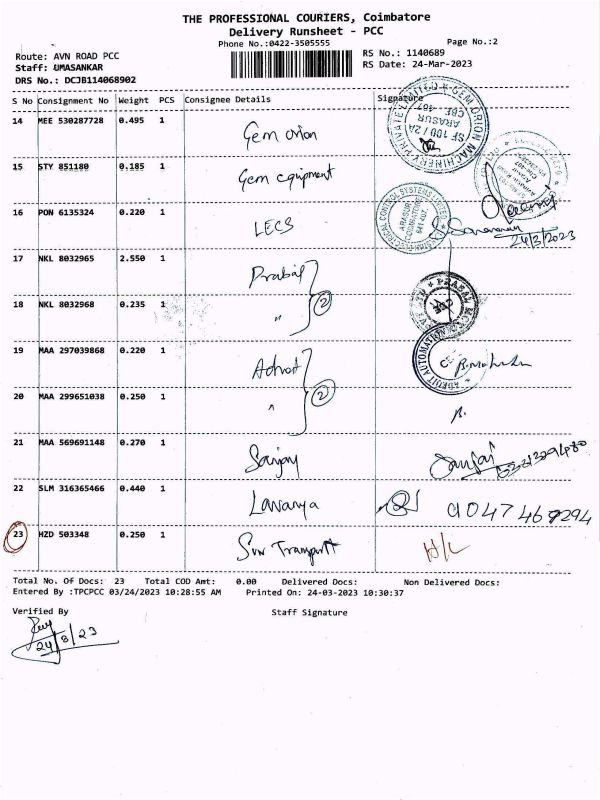 THE PROFESSIONAL COURIERS, Coimbatore
Delivery Runsheet - PCC
Phone No.:0422-3505555
Page No.:2
Route: AVN ROAD PCC
RS No.: 1140689
Staff: UMASANKAR
RS Date: 24-Mar-2023
DRS No.: DCJB114068902
S No Consignment No Weight PCS Consignee Details Signature
14 MEE 530287728 0.495 1 Gem orion
15 STY 851180 0.185 1 Gem equipment
16 PON 6135324 0.220 1 LECS
24/3/2023
17 NKL 8032965 2.550 1 Prabal
18 NKL 8032968 0.235 1 " 2
19 MAA 297039868 0.220 1
20 MAA 299651038 0.250 1 " 2
21 MAA 569691148 0.270 1 Sanjay Sanjai
22 SLM 316365466 0.440 1 Lavanya 9047469294
23 HZD 503348 0.250 1 Sun Transport H/L
Total No. Of Docs: 23 Total COD Amt: 0.00 Delivered Docs: Non Delivered Docs:
Entered By :TPCPCC 03/24/2023 10:28:55 AM Printed On: 24-03-2023 10:30:37
Verified By Staff Signature